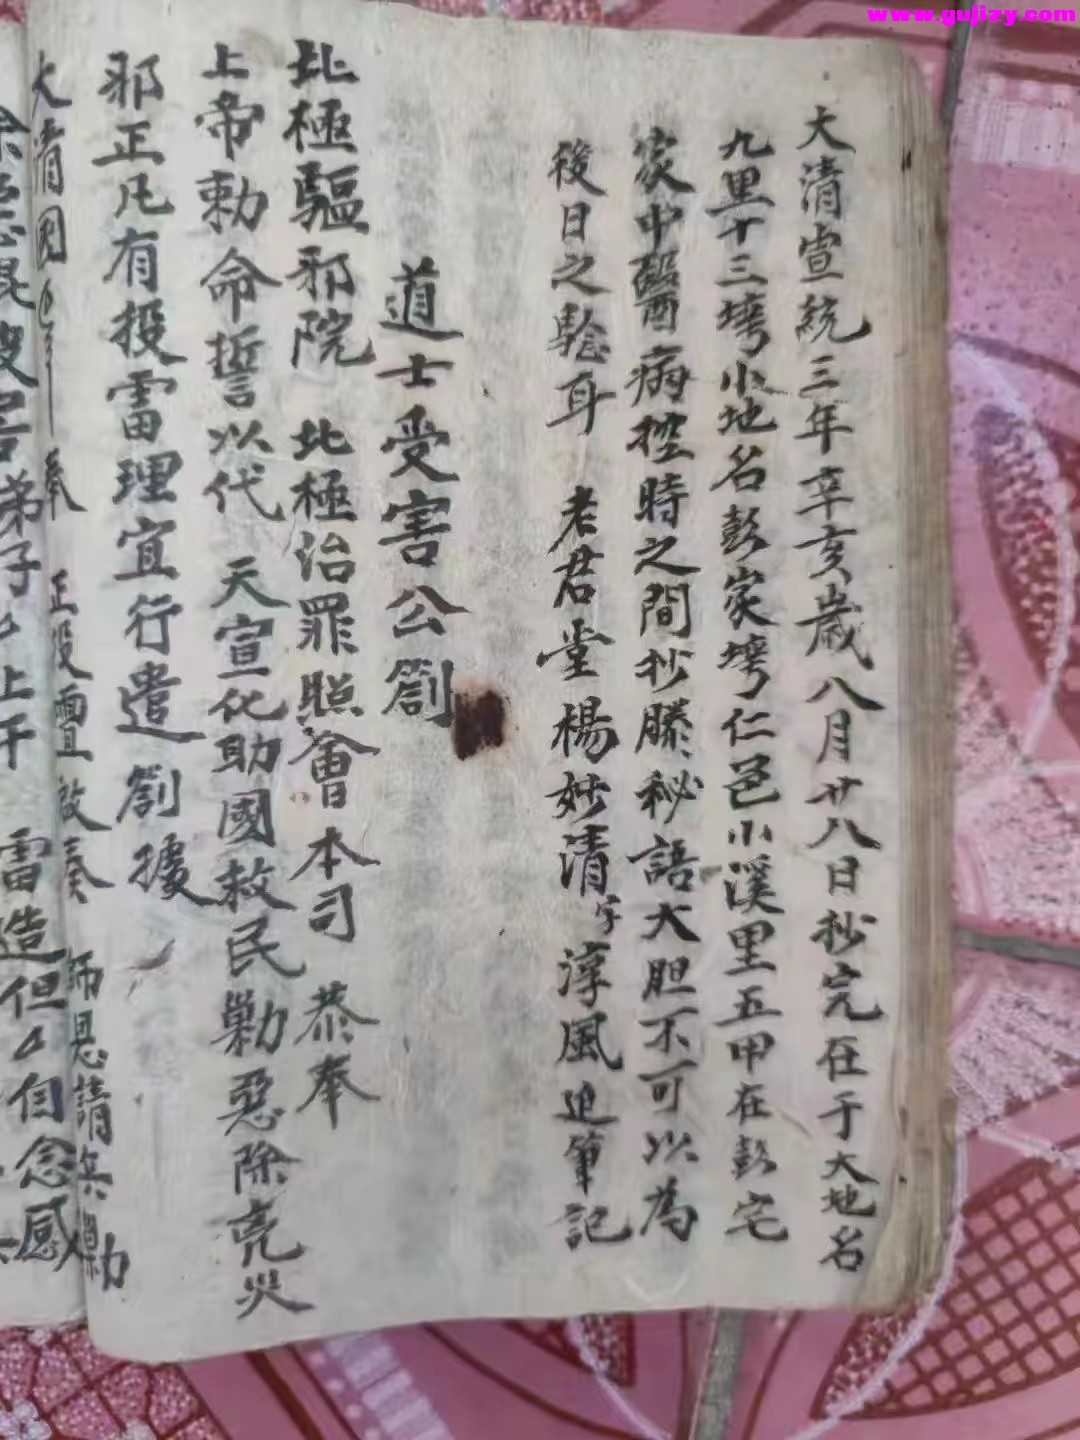 www.gujizy.com
大清宣統三年辛亥歲八月廿八日抄完在于大地名
九里十三塆小地名彭家塆仁邑小溪里五甲在彭宅
家中醫病控時之間抄滕秘語大胆不可以為
後日之騐耳 老君堂楊妙清字淳風追筆記
道士受害公劄
北極驅邪院 北極治罪照會本司 恭奉
上帝勅命誓以代 天宣化助國救民勦惡除亮災
邪正凡有投雷理宜行遣劄據
大清國 奉 正投靈啟奏 師恩請兵勦
弟子 上干 雷造但厶自念感